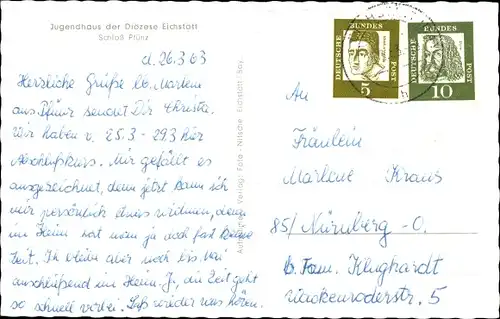 Jugendhaus der Diözese Eichstätt
Schloß Pfünz
d. 26.3.63
Herzliche Grüße lb. Marlene
aus Pfünz sendet Dir Christa.
Wir haben v. 25.3 - 29.3 hier
Abschlußkurs. Mir gefällt es
ausgezeichnet, denn jetzt kann ich
mir persönlich etwas widmen, denn
im Heim hat man ja doch fast keine
Zeit. Ich bleibe aber noch bis
anschließend im Heim. Ja, die Zeit geht
so schnell vorbei. Laß wieder was hören.
Verlag: Foto-Nitsche Eichstätt Bay.
DEUTSCHE BUNDES POST
5
DEUTSCHE BUNDES POST
10
An
Fräulein
Marlene Kraus
85/Nürnberg-O.
b. Fam. Klughardt
Wackenroderstr. 5